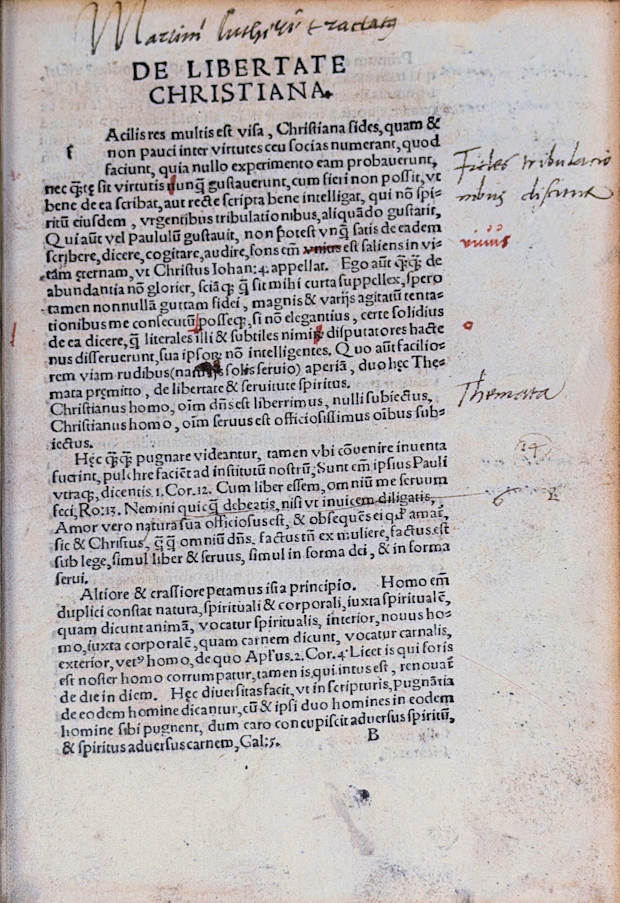 Martini Lutheri tractatus
DE LIBERTATE
CHRISTIANA.
f Acilis res multis est visa, Christiana fides, quam &
non pauci inter virtutes ceu socias numerant, quod
faciunt, quia nullo experimento eam probauerunt,
nec q̄tę sit virtutis vnq̄ gustauerunt, cum fieri non possit, vt
bene de ea scribat, aut recte scripta bene intelligat, qui nō spi-
ritū eiusdem, vrgentibus tribulationibus, aliquādo gustarit,
Qui aūt vel paululū gustauit, non potest vnq̄ satis de eadem
scribere, dicere, cogitare, audire, fons em̄ vnius est saliens in vi-
tām ęternam, vt Christus Iohan: 4. appellat. Ego aūt q̄q̄ de
abundantia nō glorier, sciāq̄ q̄ sit mihi curta suppellex, spero
tamen nonnullā guttam fidei, magnis & varijs agitatū tenta-
tionibus me consecutū posseq, si nō elegantius, certe solidius
de ea dicere, q̄ literales illi & subtiles nimis disputatores hacte
nus disseruerunt, sua ipsoꝝ nō intelligentes. Quo aūt facilio-
rem viam rudibus (nam ijs solis seruio) aperiā, duo hęc The-
mata pręmitto, de libertate & seruitute spiritus.
Christianus homo, oīm dn̄s est liberrimus, nulli subiectus,
Christianus homo, oīm seruus est officiosissimus oībus sub-
iectus.
Hęc q̄q̄ pugnare videantur, tamen vbi cōuenire inuenta
fuerint, pulchre faciēt ad institutū nostrū, Sunt em̄ ipsius Pauli
vtraq, dicentis. 1. Cor. 12. Cum liber essem, omniū me seruum
feci, Ro: 13. Nemini quicq̄ debeatis, nisi vt inuicem diligatis,
Amor vero natura sua officiosus est, & obsequēs ei qd̄ amat,
sic & Christus, q̄q̄ omniū dn̄s. factus tn̄ ex muliere, factus est
sub lege, simul liber & seruus, simul in forma dei, & in forma
serui.
Altiore & crassiore petamus ista principio. Homo em̄
duplici constat natura, spirituali & corporali, iuxta spiritualē,
quam dicunt animā, vocatur spiritualis, interior, nouus ho-
mo, iuxta corporalē, quam carnem dicunt, vocatur carnalis,
exterior, vetꝰ homo, de quo Apl̄us. 2. Cor. 4. Licet is qui foris
est noster homo corrumpatur, tamen is, qui intus est, renouat̄
de die in diem. Hęc diuersitas facit, vt in scripturis, pugnātia
de eodem homine dicantur, cū & ipsi duo homines in eodem
homine sibi pugnent, dum caro concupiscit aduersus spiritū,
& spiritus aduersus carnem, Gal: 5.
B
Fides tribulatio
nibus
viuus
Themata